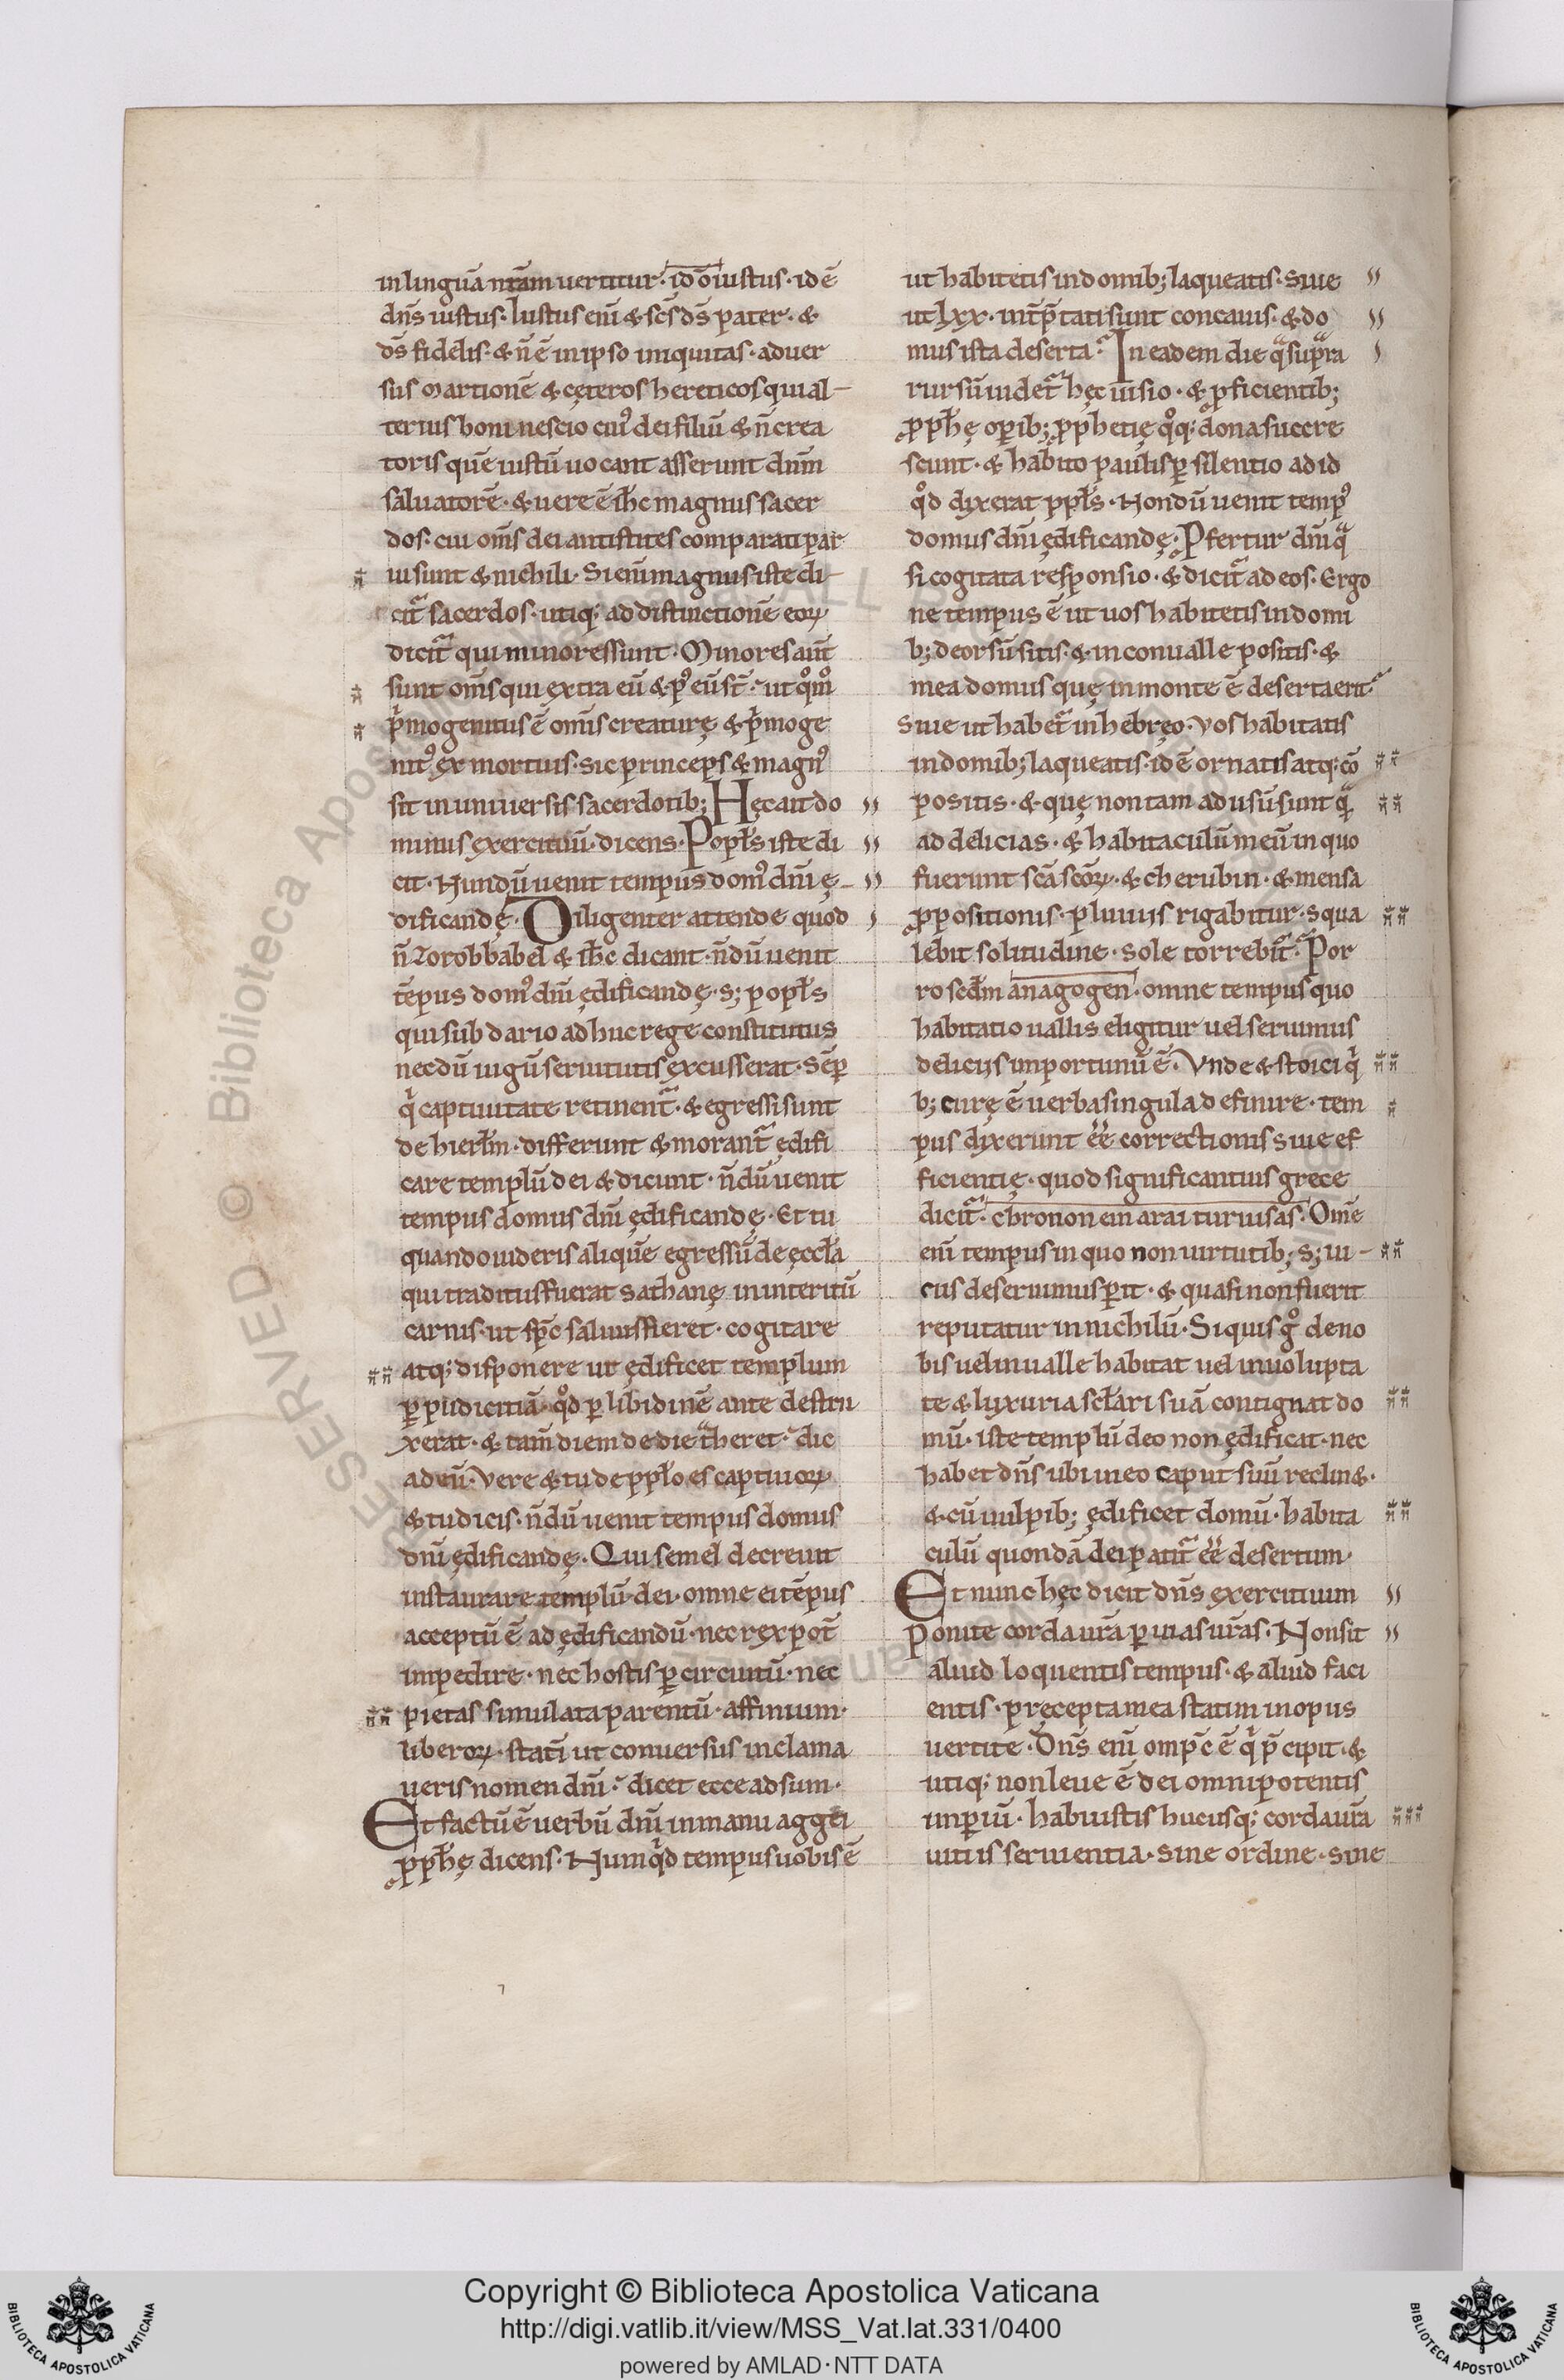 in linguā nrām uertitur· id ō iustus· id ē
dñs iustus· Iustus eni͂ & scs ds pater· &
ds fidelis· & ñ ē in ipso iniquitas· aduer
sus martionē & cęteros hereticos qui al-
terius boni nescio cui᷒ dei filiū & ñ crea
toris quē iustū uocant asserunt dñm
saluatorē· & uere ē ihc magnus sacer
dos· cui om̄s dei antistites comparati par
ui sunt & nichili· Si eni͂ magnus iste di-
cit᷑ sacerdos· utiq; ad distinctionē eoꝝ
dicit᷑ qui minores sunt· Minores aūt
sunt om̄s qui extra eū & p᷒ eū st̄· ut qͦm̊
pͥmogenitus ē om̄is creaturę & pͥmoge
nit᷒ ex mortuis· sic princeps & magn᷒
sit in uniuersis sacerdotib; Hęc ait do
minus exercituū· dicens· Popl̄s iste di
cit· Nundū uenit tempus dom᷒ dñi ę-
dificandę· Diligenter attende quod
ñ Zorobbabel & ihc dicant· ñdū uenit
tēpus dom᷒ dñi ędificandę· s; popl̄s
qui sub dario adhuc rege constitutus
necdū iugū seruitutis excusserat· Sēꝑ
qͥ captiuitate retinent᷑· & egressi sunt
de hierl̄m· differunt & morant᷑ ędifi
care templū dei & dicunt· ñdū uenit
tempus domus dñi ędificandę· Et tu
quando uideris aliquē egressū de ęccl̄a
qui traditus fuerat sathanę in interitū
carnis· ut sp̄c saluus fieret· cogitare
atq; disponere ut ędificet templum
ꝑ pudicitiā· qͦd ꝑ libidinē ante destru
xerat· & tam̄ diem de die tᷓheret· dic
ad eū· Vere & tu de ppl̄o es captiuoꝝ
& tu dicis· ñdū uenit tempus domus
dñi ędificandę· Qui semel decreuit
instaurare templū dei· omne ei tēpus
acceptū ē ad ędificandū· nec rex pot̄
impedire· nec hostis ꝑ circuitū· nec
pietas simulata parentū· affinium·
liberoꝝ· stati͂ ut conuersus inclama
ueris nomen dñi· dicet ecce adsum·
Et factū ē uerbū dñi in manu aggei
ꝓph̄ę dicens· Numqͥd tempus uobis ē
ut habitetis in domib; laqueatis· siue
ut lxx· int̄p̄tati sunt concauis· & do
mus ista deserta· In eadem die qᷓ supᷓra
rursū uidet᷑ hęc uisio· & ꝓficientib;
ꝓph̄ę oꝑib; ꝓphetię qͦq; dona succre
scunt· & habito paulisꝑ silentio ad id
qͦd dixerat ppl̄s· Nondū uenit temp᷒
domus dñi ędificandę· Pfertur dñi qᷓ
si cogitata responsio· & dicit᷑ ad eos· Ergo
ne tempus ē ut uos habitetis in domi
b; deorsū sitis· & in conualle positis· &
mea domus quę in monte ē deserta erit·
Siue ut habet᷑ in hebręo· Vos habitatis
in domib; laqueatis· id ē ornatis atq; cō
positis· & quę non tam ad usū sunt qᷓ
ad delicias· & habitaculū meū in quo
fuerunt scā scōꝝ· & cherubin· & mensa
ꝓpositionis· pluuiis rigabitur· squa
lebit solitudine· sole torrebit᷑· Por
ro scdm̄ anagogen· omne tempus quo
habitatio uallis eligitur uel seruimus
deliciis inportunū ē· Vnde & stoici qͥ
b; curę ē uerba singula definire· tem
pus dixerunt ēē correctionis siue ef
ficientię· quod significantius grece
dicit᷑· chronon ein arai turuisas· Om̄e
eni͂ tempus in quo non uirtutib; s; ui-
cus deseruimus ꝑit· & quasi non fuerit
reputatur in nichilū· Si quis gͦ de no
bis uel in ualle habitat uel in uolupta
te & luxuria scl̄ari suā contignat do
mū· iste templū deo non ędificat· nec
habet dñs ubi in eo caput suū reclin&·
& cū uulpib; ędificet domū· habita
culū quondā dei patit᷑ ēē desertum·
Et nunc hęc dicit dñs exercituum
Ponite corda ur̄a ꝑ uias ur̄as· Non sit
aliud loquentis tempus· & aliud faci
entis· pręcepta mea statim in opus
uertite· Dñs eni͂ omp̄c ē qͥ p̄cipit· &
utiq; non leue ē dei omnipotentis
imꝑiū· habuistis hucusq; corda ur̄a
uitiis seruientia· sine ordine· sine
Copyright © Biblioteca Apostolica Vaticana
http://digi.vatlib.it/view/MSS_Vat.lat.331/0400
powered by AMLAD·NTT DATA